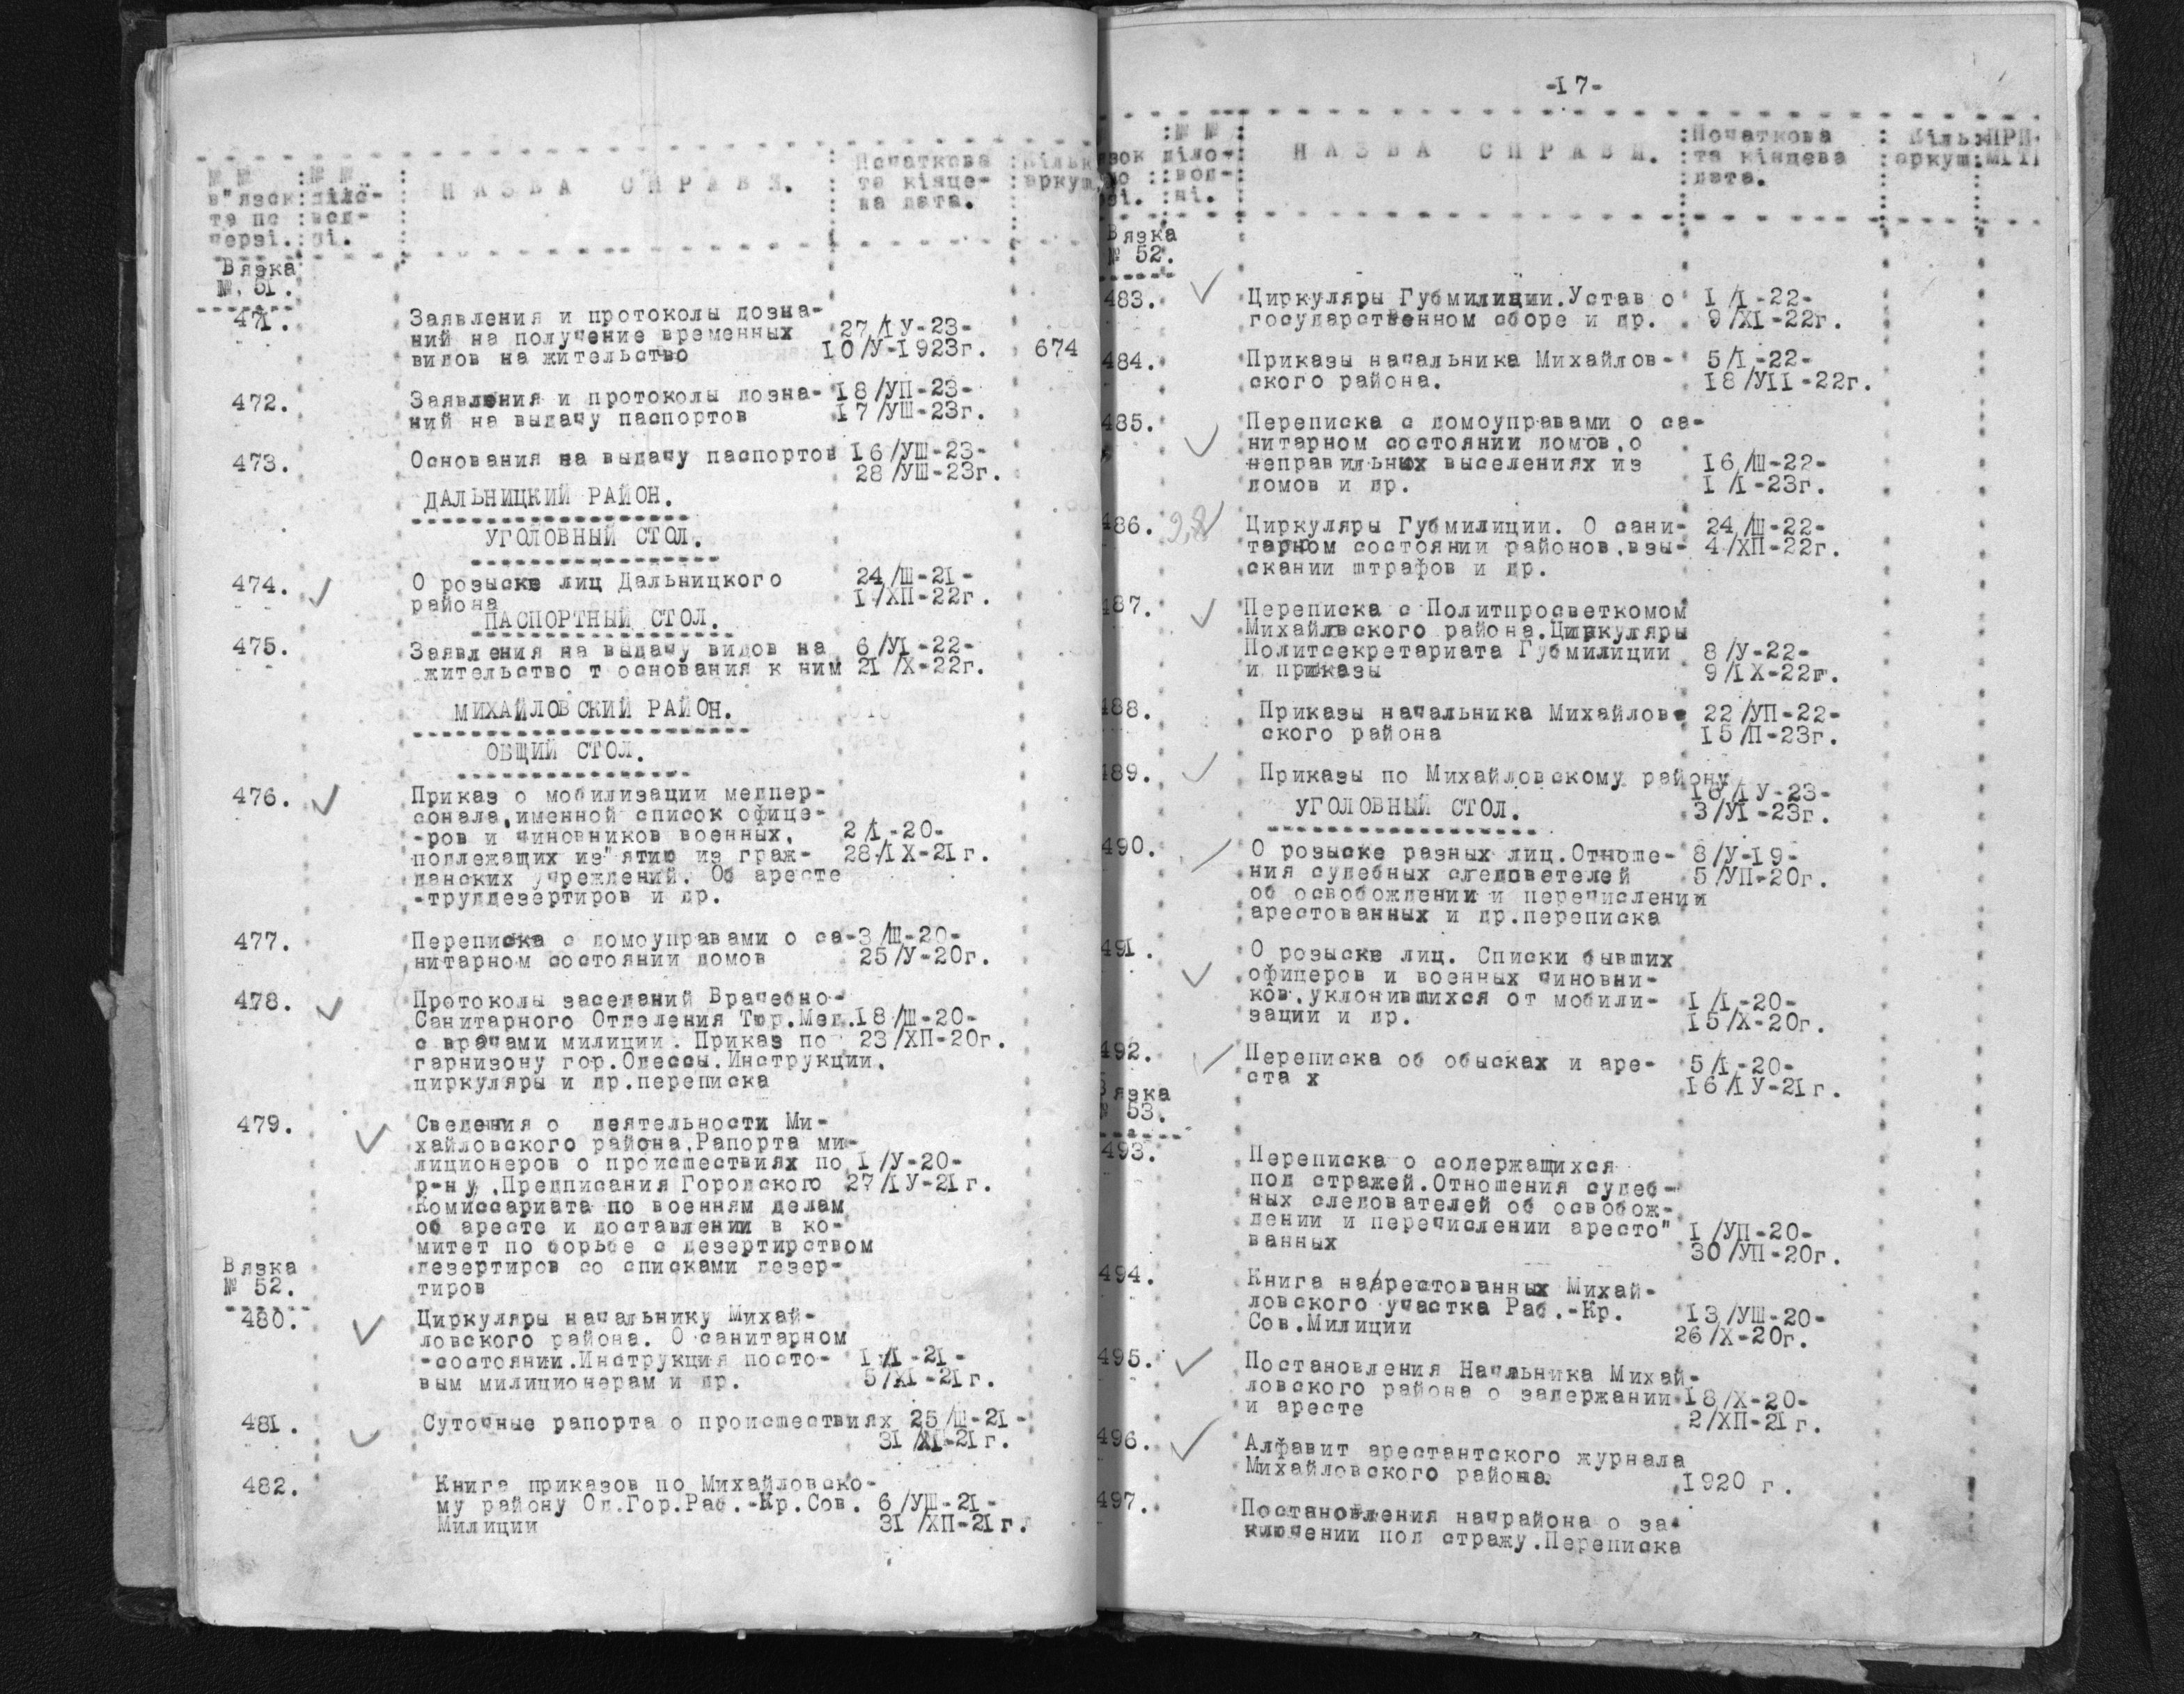 № № :№ № : Початкова :Кільк
в"язок:діло-: Н А З В А С П Р А В И. та кінце- :аркуш.
та по :вод- ва дата.
черзі.:ді.
Вязка
№ 51.
471. Заявления и протоколы дозна-
ний на получение временных 27/IУ-23-
видов на жительство 10/У-1923г. 674
472. Заявления и протоколы дозна- 18/УП-23-
ний на выдачу паспортов 17/УШ-23г.
473. Основания на выдачу паспортов 16/УШ-23-
28/УШ-23г.
ДАЛЬНИЦКИЙ РАЙОН.
УГОЛОВНЫЙ СТОЛ.
474. О розыске лиц Дальницкого 24/Ш-21-
района 1/ХП-22г.
ПАСПОРТНЫЙ СТОЛ.
475. Заявления на выдачу видов на 6/УI-22-
жительство т основания к ним 21/Х-22г.
МИХАЙЛОВСКИЙ РАЙОН.
ОБЩИЙ СТОЛ.
476. Приказ о мобилизации медпер-
сонала,именной список офице-
-ров и чиновников военных, 2/I-20-
подлежащих из"ятию из граж- 28/IХ-21г.
данских учреждений. Об аресте
-труддезертиров и др.
477. Переписка с домоуправами о са-3/Ш-20-
нитарном состоянии домов 25/У-20г.
478. Протоколы заседаний Врачебно-
Санитарного Отделения Тюр.Мед.18/Ш-20-
с врачами милиции. Приказ по 23/ХП-20г.
гарнизону гор.Одессы.Инструкции,
циркуляры и др.переписка
479. Сведения о деятельности Ми-
хайловского района,Рапорта ми-
лиционеров о происшествиях по 1/У-20-
р-ну,Предписания Городского 27/IУ-21г.
Комиссариата по военням делам
об аресте и доставлении в ко-
митет по борьбе с дезертирством
Вязка дезертиров со списками дезер-
№ 52. тиров
480. Циркуляры начальнику Михай-
ловского района. О санитарном
-состоянии.Инструкция посто- 1/I-21-
вым милиционерам и др. 5/ХI-21г.
481. Суточные рапорта о происшествиях 25/Ш-21-
31/ХI-21г.
482. Книга приказов по Михайловско-
му району Од.Гор.Раб.-Кр.Сов. 6/УШ-21-
Милиции 31/ХП-21г.
-17-
:№ № : :Початкова : Кіль:ПРИ-
язок діло-: Н А З В А С П Р А В И. :та кінцева :аркуш:МІТІ
по :вод- :дата.
зі. :ді.
Вязка
№ 52.
483. Циркуляры Губмилиции.Устав о 1/I-22-
государственном сборе и др. 9/ХI-22г.
484. Приказы начальника Михайлов- 5/I-22-
ского района. 18/УII-22г.
485. Переписка с домоуправами о са-
нитарном состоянии домов,о
неправильных выселениях из 16/Ш-22-
домов и др. 1/I-23г.
486. Циркуляры Губмилиции. О сани- 24/Ш-22-
тарном состоянии районов,взы- 4/ХП-22г.
скании штрафов и др.
487. Переписка с Политпросветкомом
Михайлвского района.Циркуляры
Политсекретариата Губмилиции 8/У-22-
и приказы 9/IХ-22г.
488. Приказы начальника Михайлов- 22/УП-22-
ского района 15/П-23г.
489. Приказы по Михайловскому району
16/IУ-23-
УГОЛОВНЫЙ СТОЛ. 3/УI-23г.
490. О розыске разных лиц.Отноше- 8/У-19-
ния судебных следователей 5/УП-20г.
об освобождении и перечислении
арестованных и др.переписка
491. О розыске лиц. Списки бывших
офицеров и военных чиновни-
ков,уклонившихся от мобили- 1/I-20-
зации и др. 15/Х-20г.
492. Переписка об обысках и аре- 5/I-20-
ста х 16/IУ-21г.
Вязка
№ 53.
493. Переписка о содержащихся
под стражей.Отношения судеб-
ных следователей об освобож-
дении и перечислении аресто" 1/УП-20-
ванных 30/УП-20г.
494. Книга на/арестованных Михай-
ловского участка Раб.-Кр. 13/УШ-20-
Сов.Милиции 26/Х-20г.
495. Постановления Начльника Михай-
ловского района о задержании 18/Х-20-
и аресте 2/ХП-21г.
496. Алфавит арестантского журнала
Михайловского района. 1920 г.
497. Постановления начрайона о за-
ключении под стражу.Переписка